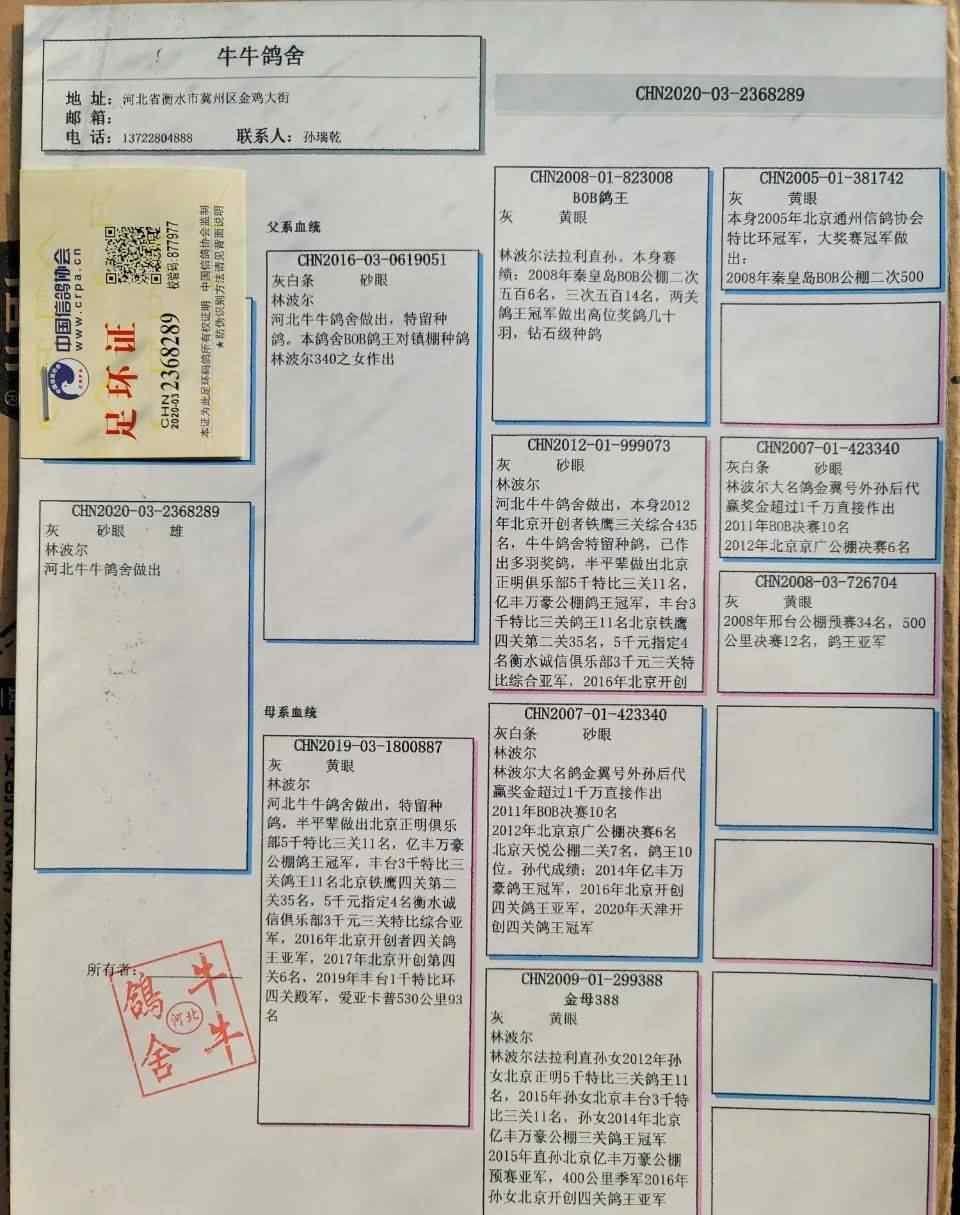 牛牛鸽舍
地 址: 河北省衡水市冀州区金鸡大街
邮 箱:
电 话: 13722804888 联系人: 孙瑞乾
CHN2020-03-2368289
中国信鸽协会
www.crpa.cn
足环证
CHN
2020-03 2368289
校验码: 877977
本证为此足环码鸽所有权证明 中国信鸽协会监制
★防伪识别方法请见背面说明
CHN2020-03-2368289
灰 砂眼 雄
林波尔
河北牛牛鸽舍做出
所有者:
牛牛
鸽舍
河北
父系血统
CHN2016-03-0619051
灰白条 砂眼
林波尔
河北牛牛鸽舍做出，特留种
鸽。本鸽舍BOB鸽王对镇棚种鸽
林波尔340之女作出
母系血统
CHN2019-03-1800887
灰 黄眼
林波尔
河北牛牛鸽舍做出，特留种
鸽，半平辈做出北京正明俱乐
部5千特比三关11名，亿丰万豪
公棚鸽王冠军，丰台3千特比三
关鸽王11名北京铁鹰四关第二
关35名，5千元指定4名衡水诚
信俱乐部3千元三关特比综合亚
军，2016年北京开创者四关鸽
王亚军，2017年北京开创第四
关6名，2019年丰台1千特比环
四关殿军，爱亚卡普530公里93
名
CHN2008-01-823008
BOB鸽王
灰 黄眼
林波尔法拉利直孙。本身赛
绩：2008年秦皇岛BOB公棚二次
五百6名，三次五百14名，两关
鸽王冠军做出高位奖鸽几十
羽，钻石级种鸽
CHN2012-01-999073
灰 砂眼
林波尔
河北牛牛鸽舍做出，本身2012
年北京开创者铁鹰三关综合435
名，牛牛鸽舍特留种鸽，己作
出多羽奖鸽，半平辈做出北京
正明俱乐部5千特比三关11名，
亿丰万豪公棚鸽王冠军，丰台3
千特比三关鸽王11名北京铁鹰
四关第二关35名，5千元指定4
名衡水诚信俱乐部3千元三关特
比综合亚军，2016年北京开创
CHN2007-01-423340
灰白条 砂眼
林波尔
林波尔大名鸽金翼号外孙后代
赢奖金超过1千万直接作出
2011年BOB决赛10名
2012年北京京广公棚决赛6名
北京天悦公棚二关7名，鸽王10
位。孙代成绩：2014年亿丰万
豪鸽王冠军，2016年北京开创
四关鸽王亚军，2020年天津开
创四关鸽王冠军
CHN2009-01-299388
金母388
灰 黄眼
林波尔
林波尔法拉利直孙女2012年孙
女北京正明5千特比三关鸽王11
名，2015年孙女北京丰台3千特
比三关11名，孙女2014年北京
亿丰万豪公棚三关鸽王冠军
2015年直孙北京亿丰万豪公棚
预赛亚军，400公里季军2016年
孙女北京开创四关鸽王亚军
CHN2005-01-381742
灰 黄眼
本身2005年北京通州信鸽协会
特比环冠军，大奖赛冠军做
出：
2008年秦皇岛BOB公棚二次500
CHN2007-01-423340
灰白条 砂眼
林波尔大名鸽金翼号外孙后代
赢奖金超过1千万直接作出
2011年BOB决赛10名
2012年北京京广公棚决赛6名
CHN2008-03-726704
灰 黄眼
2008年邢台公棚预赛34名，500
公里决赛12名，鸽王亚军